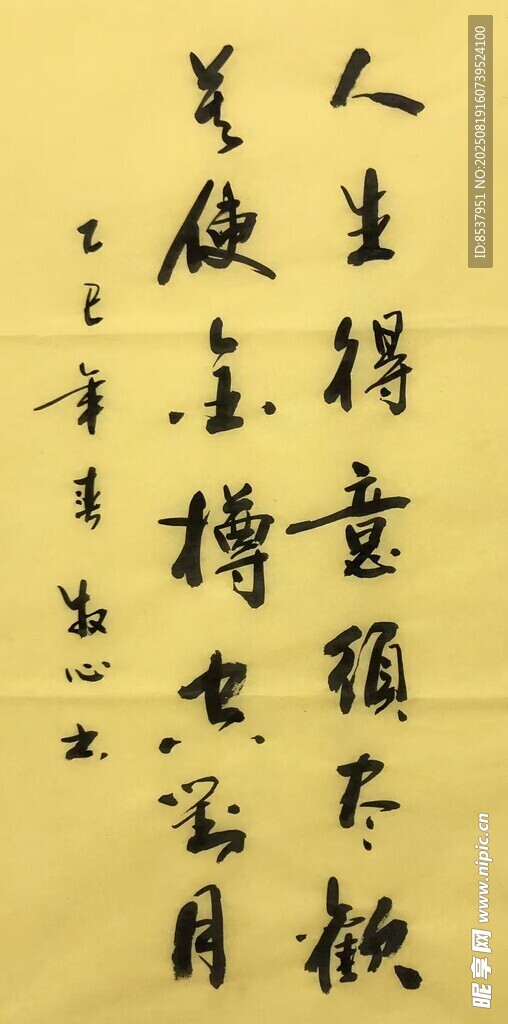 人生得意須尽歡
莫使金樽空對月
乙巳年春 牧心书
ID:8537951 NO:20250819160739524100
昵享网 www.nipic.cn